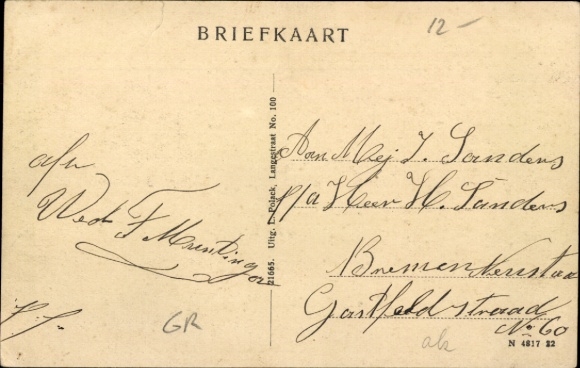 BRIEFKAART
12 -
afz
Wed F Munting
p. f.
GR
21665. Uitg. L. Polack, Langestraat No. 100 —
Aan Mej J. Sanders
p/a Heer H. Sanders
Bremen Neustad
Gastfeldstraad
No. 60
N 4817 22